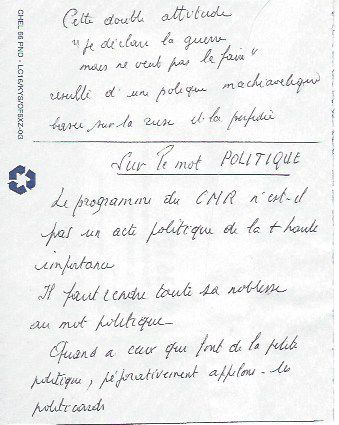 CHEL 55 PND - LC16/KYS/OF8XZ-03
Cette double attitude
"je déclare la guerre
mais ne veut pas la faire"
resulte d'une politique machiavelique
basée sur la ruse et la perfidie
Sur le mot POLITIQUE
Le programme du CMR n'est-il
pas un acte politique de la + haute
importance
Il faut rendre toute sa noblesse
au mot politique
Quand a ceux qui font de la petite
politique, péjorativement appelons-les
politicards